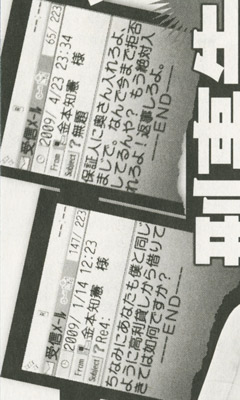 受信ﾒｰﾙ 147/223
2009/ 1/14 12:23
From 金本知憲 様
Subject ? Re4:
ちなみにあなたも僕と同じ
ように高利貸しから借りて
きては如何ですか？
----END----
受信ﾒｰﾙ 65/223
2009/ 4/23 23:34
From 金本知憲 様
Subject ? 無題
保証人に奥さん入れろよ、
まじで。なんで今まで拒否
してるんや？ もう絶対入
れろよ！返事しろよ。
----END----